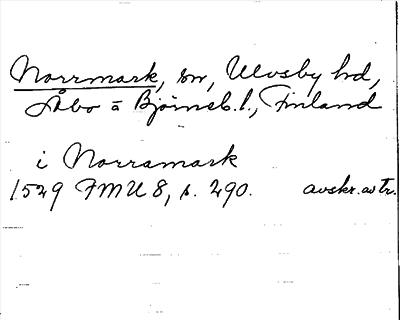 Norrmark, sn, Ulvsby hd,
Åbo o Björneb. l., Finland
i Norramark
1529 FMU 8, s. 290. avskr. av tr.